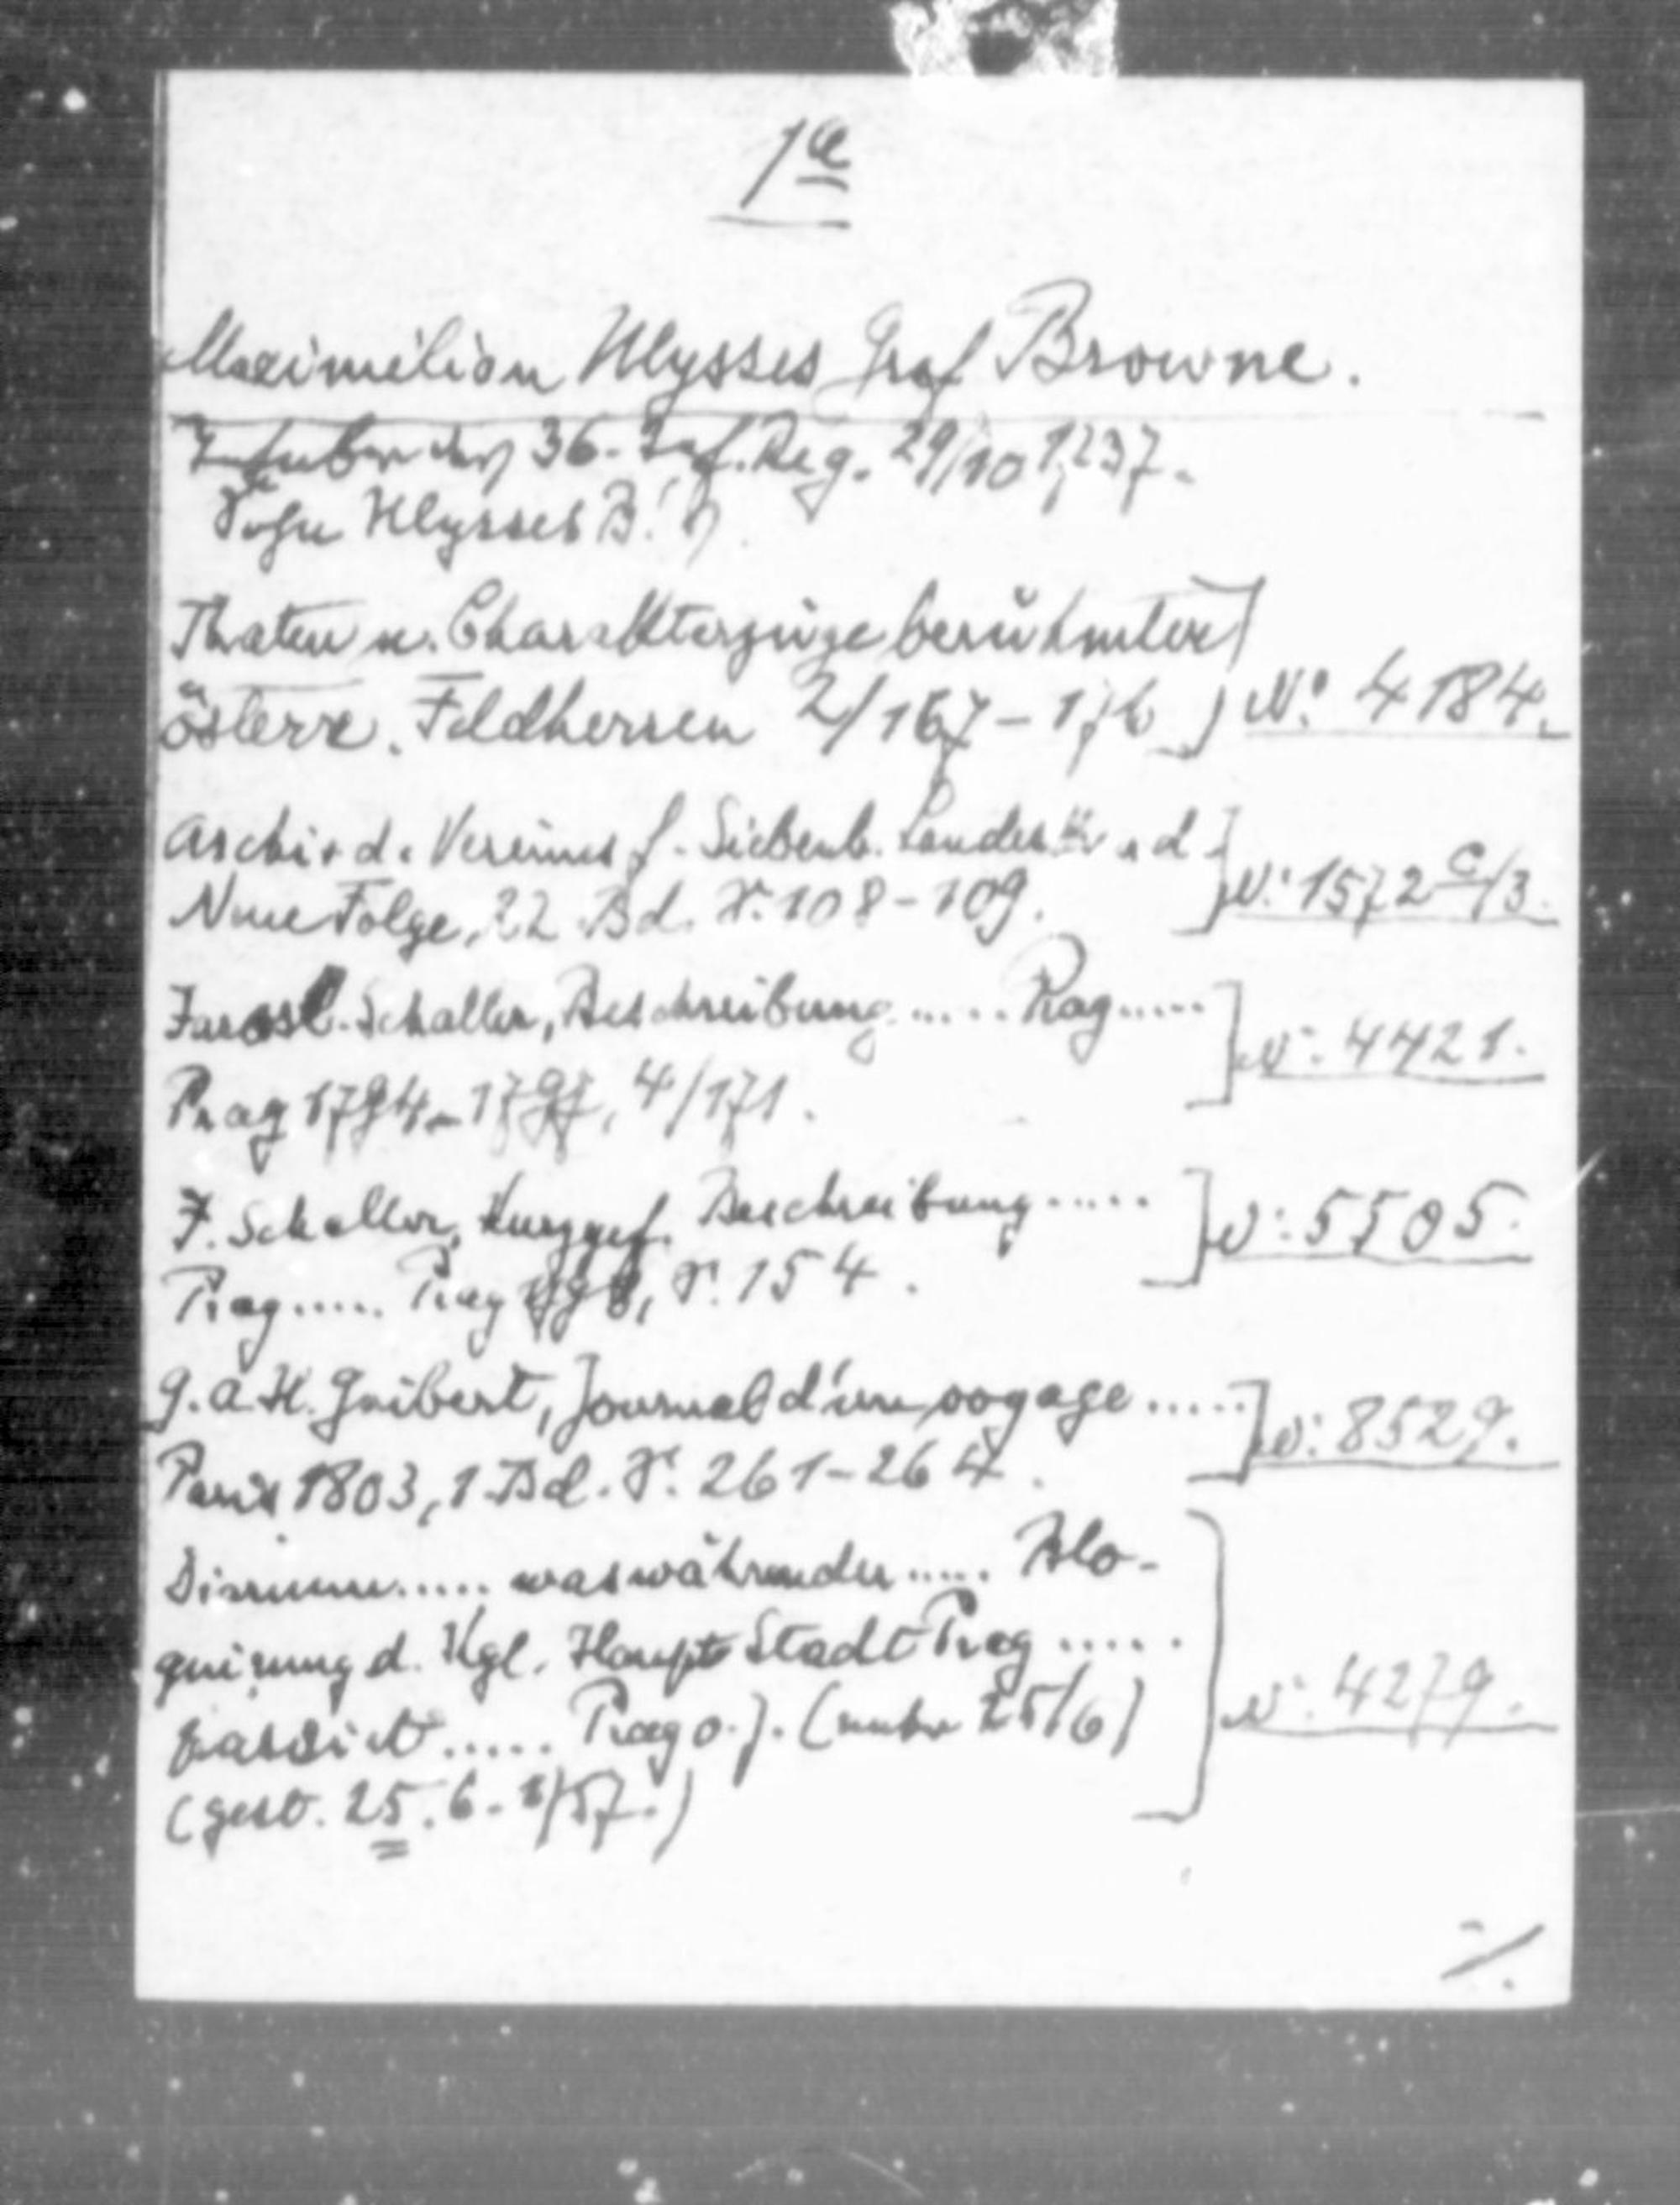 1a
Maximilian Ulysses Graf Browne.
Inhaber des 36. Inf. Reg. 29/10 1737.
Sohn Ulysses B.!
Thaten u. Charakterzüge berühmter
österr. Feldherren 2/167-176 N° 4184.
Archiv d. Vereines f. Siebenb. Landeskd.
Neue Folge, 22 Bd. S. 108-109. N: 1572 c/3.
Jarosl. Schaller, Beschreibung ..... Prag .....
Prag 1794-1797, 4/171. N: 4421.
J. Schaller, Kurzgef. Beschreibung .....
Prag ..... Prag 1798, S. 154. N: 5505.
G. A. H. Guibert, Journal d'un voyage .....
Paris 1803, 1. Bd. S. 261-264. N: 8529.
Diarium ..... was während der ..... Blo-
quirung d. Kgl. Haupt Stadt Prag .....
passirt ..... Prag o. J. (unter 25/6) N: 4279.
(gest. 25. 6. 1757.)
./.